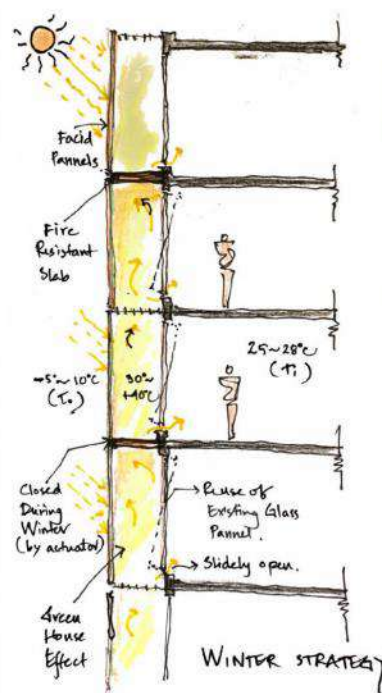 Facid
Pannels
Fire
Resistant
Slab
25~28°c
(Ti)
-5°~10°c
(To)
30°~
+40°c
Closed
During
Winter
(by actuator)
Reuse of
Existing Glass
Pannel.
Slidely open.
Green
House
Effect
WINTER STRATEGY